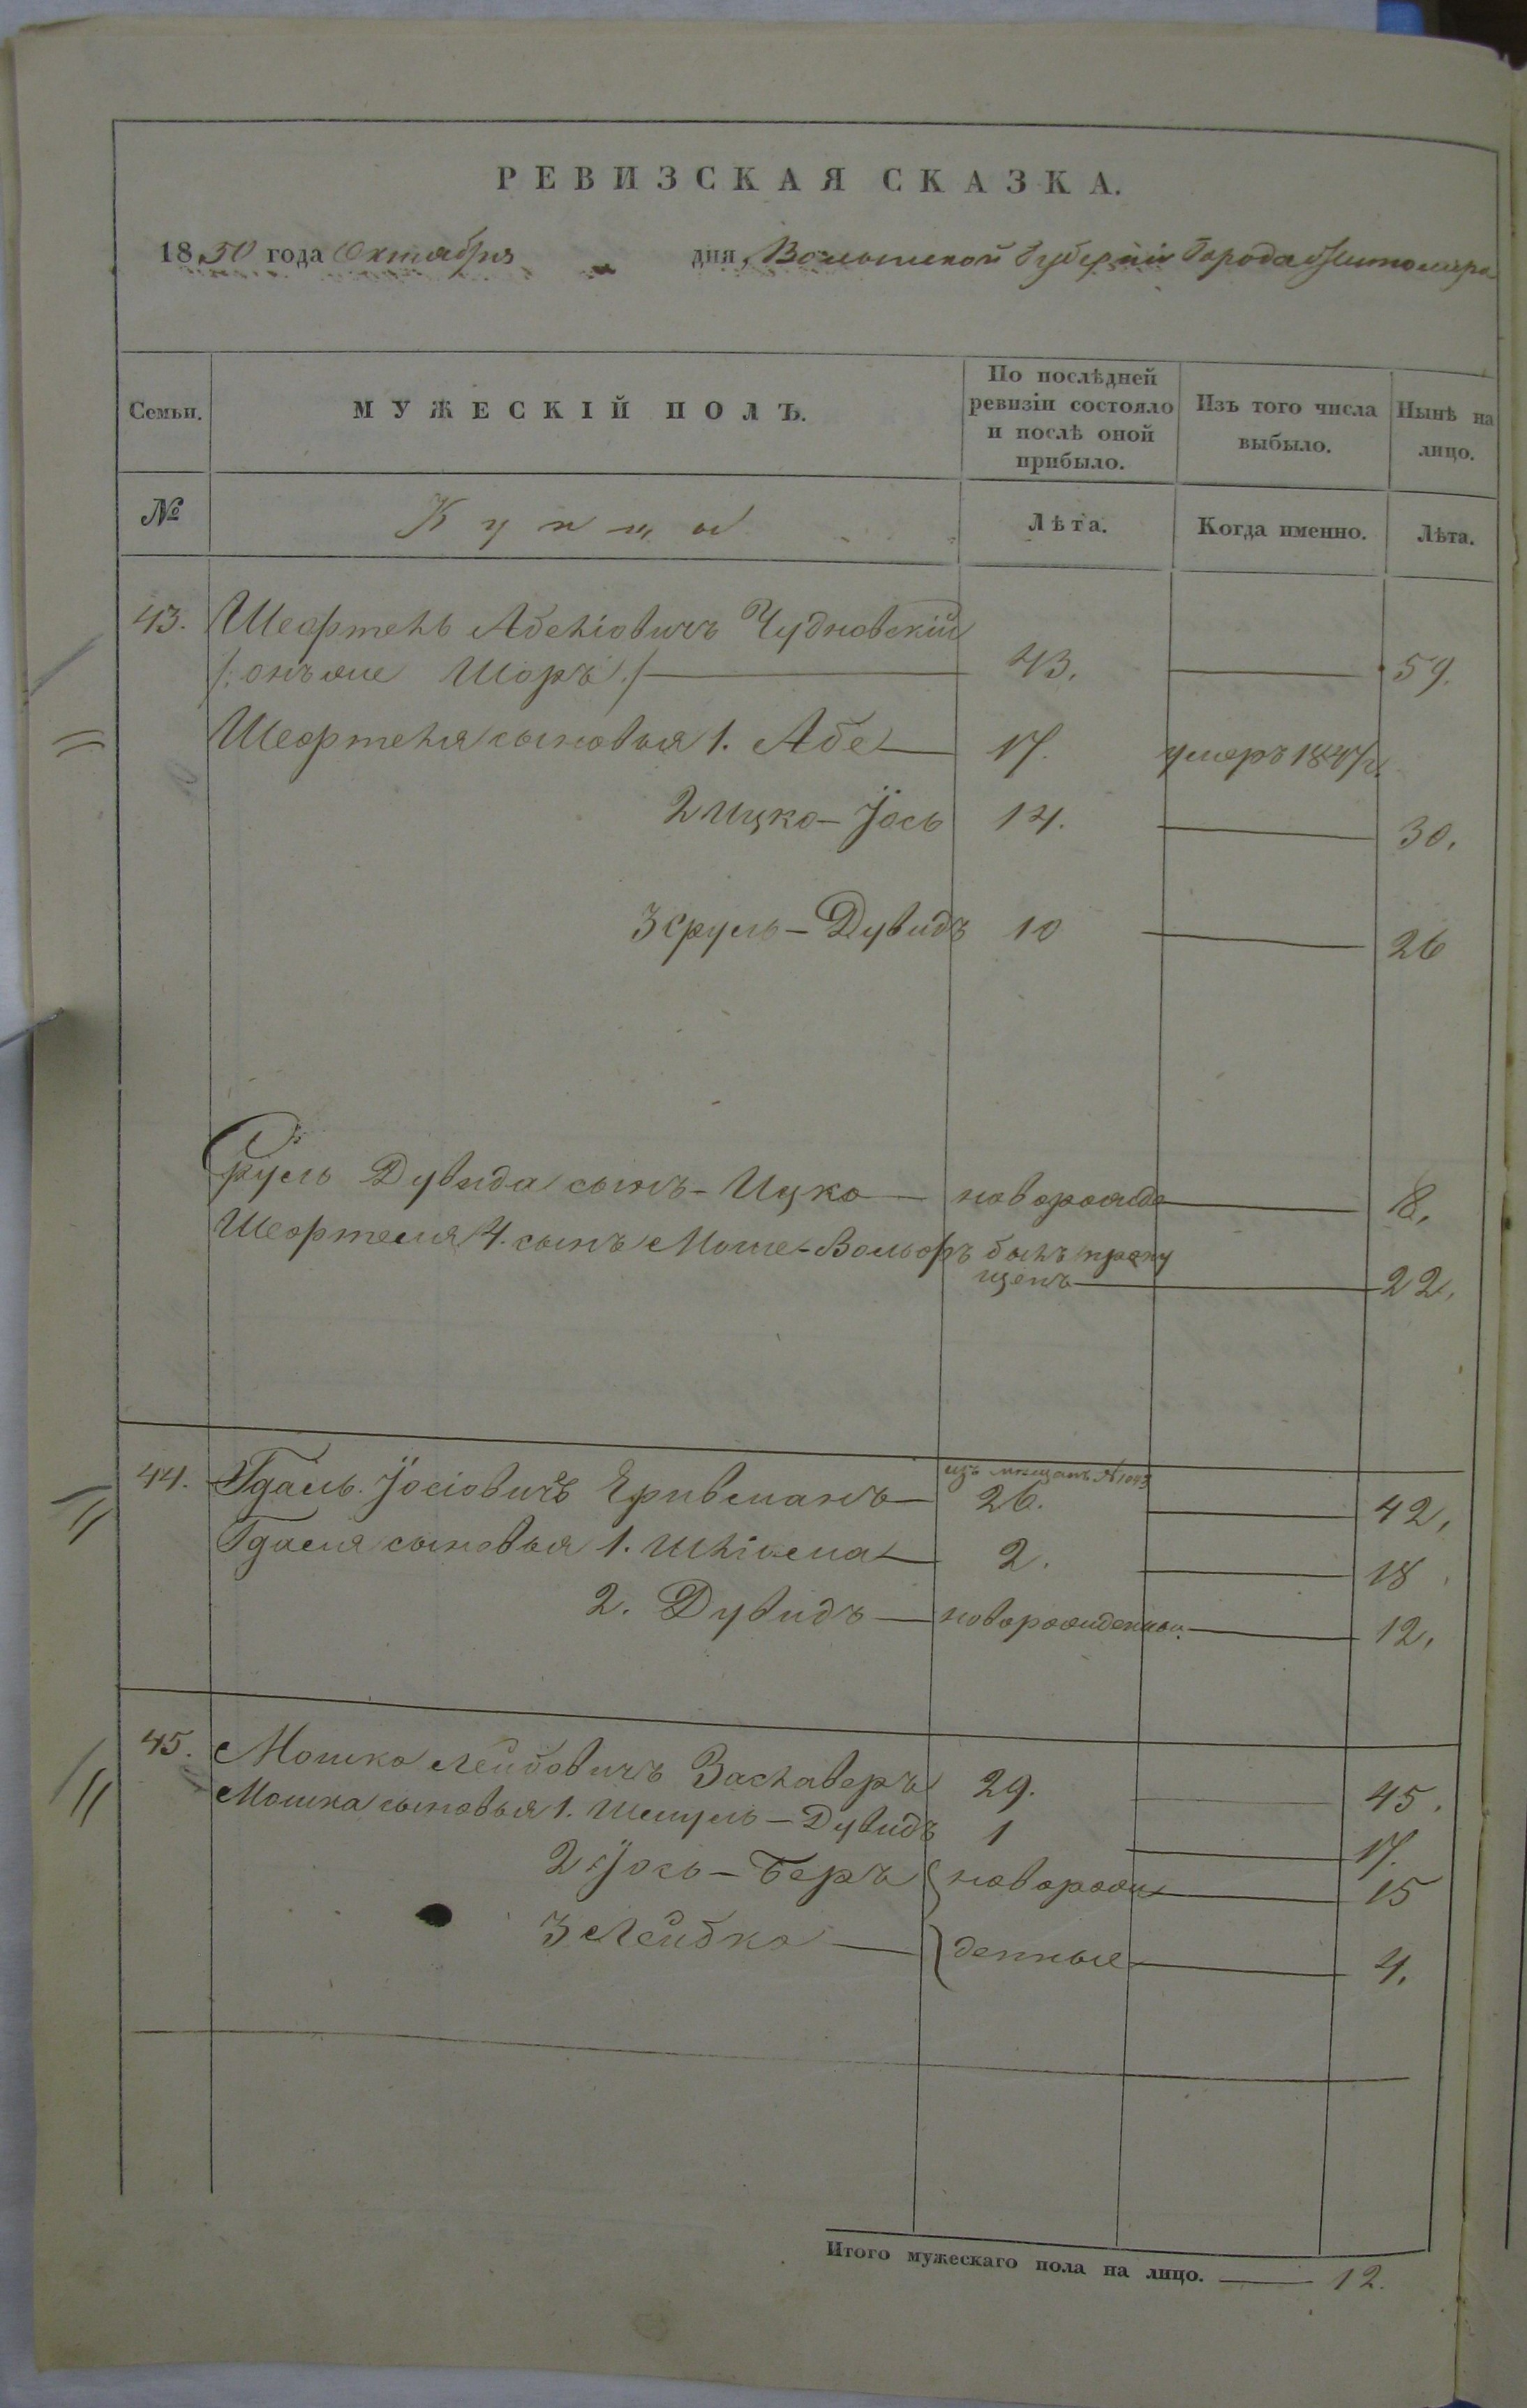 РЕВИЗСКАЯ СКАЗКА.
1850 года Октября дня, Волынской Губерніи Города Житомира
Семьи.
МУЖЕСКІЙ ПОЛЪ.
По послѣдней
ревизіи состояло
и послѣ оной
прибыло.
Изъ того числа
выбыло.
Нынѣ на
лицо.
№
Купцы
Лѣта.
Когда именно.
Лѣта.
43. Шефтель Абеліовичъ Чудновскій
/:онъ же Шоръ:/ 43. 59.
Шефтеля сыновья 1. Абе 17. умеръ 1847 г.
2 Ицко-Іось 14. 30.
3 Сруль-Дувидъ 10 26
Сруль Дувида сынъ-Ицко новорожде 8.
Шефтеля 4. сынъ Моше-Вольфъ былъ пропу
щенъ 22.
изъ мѣщанъ № 1043
44. Гдаль Іосіовичъ 26. 42.
Гдаля сыновья 1. Шліема 2. 18.
2. Дувидъ новорожденный. 12.
45. Мошко Лейбовичъ Заславеръ 29. 45.
Мошка сыновья 1. Шмуль-Дувидъ 1 17.
2 Іось-Беръ новорож 15
3 Лейбко денные 4.
Итого мужескаго пола на лицо. 12.